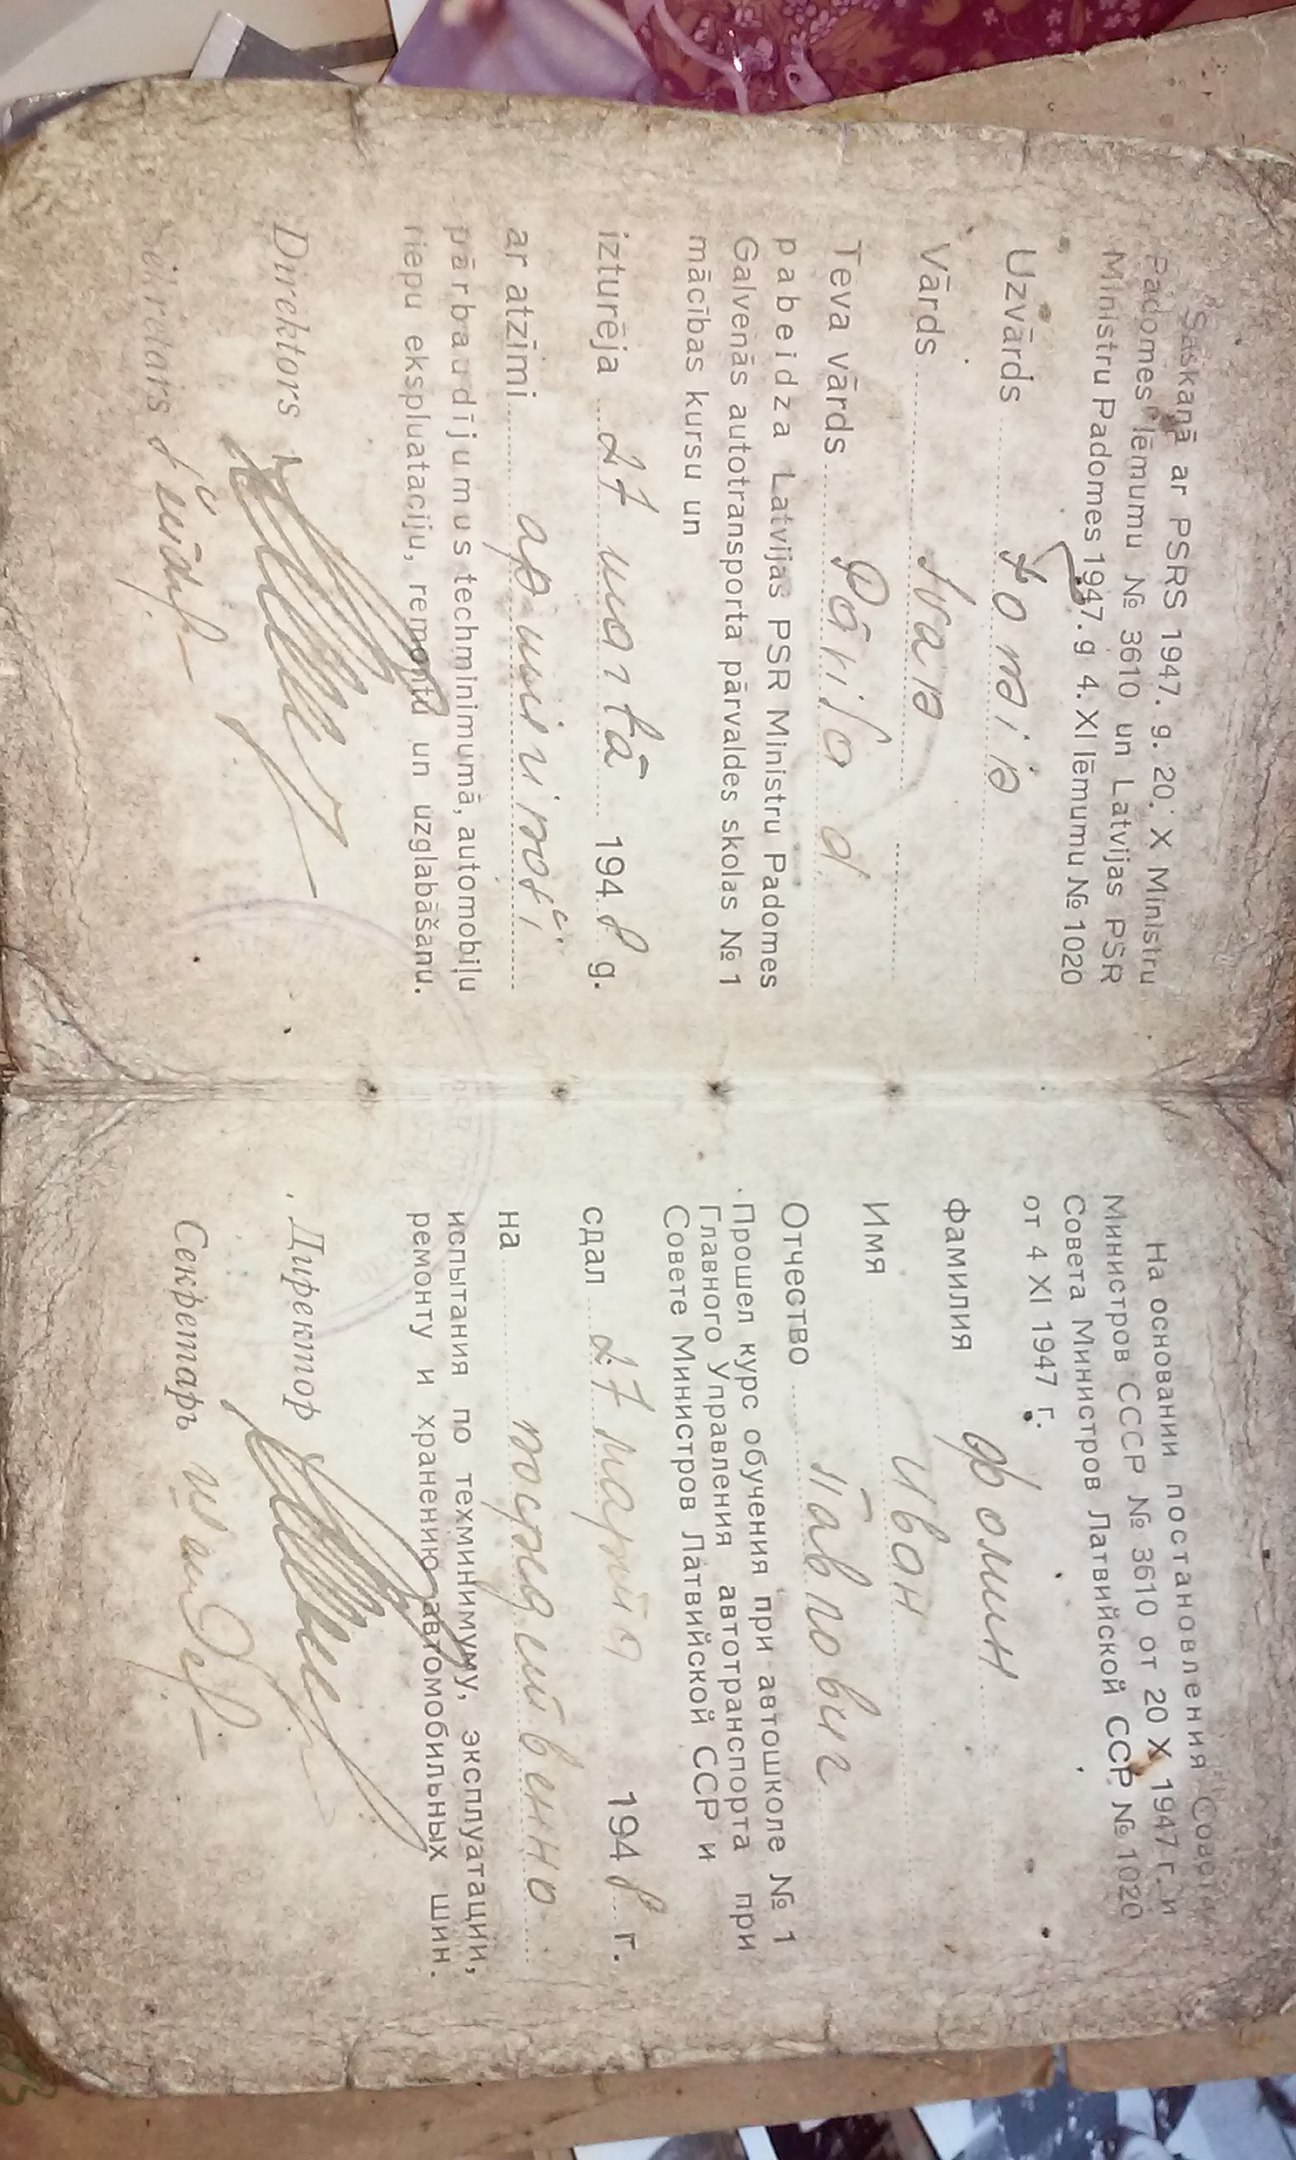 Saskaņā ar PSRS 1947. g. 20. X Ministru
Padomes lēmumu № 3610 un Latvijas PSR
Ministru Padomes 1947. g 4. XI lēmumu № 1020
Uzvārds
Vārds
Tēva vārds
pabeidza Latvijas PSR Ministru Padomes
Galvenās autotransporta pārvaldes skolas № 1
mācības kursu un
izturēja 27 martā 1948 g.
ar atzīmi apmierinoši
pārbaudījumus techminimumā, automobiļu
riepu ekspluataciju, remontu un uzglabāšanu.
Direktors
Sekretars
На основании постановления Совета
Министров СССР № 3610 от 20 X 1947 г. и
Совета Министров Латвийской ССР № 1020
от 4 XI 1947 г.
Фамилия Фомин
Имя Иван
Отчество Павлович
Прошел курс обучения при автошколе № 1
Главного Управления автотранспорта при
Совете Министров Латвийской ССР и
сдал 27 марта 1948 г.
на посредственно
испытания по техминимуму, эксплуатации,
ремонту и хранению автомобильных шин.
Директор
Секретарь